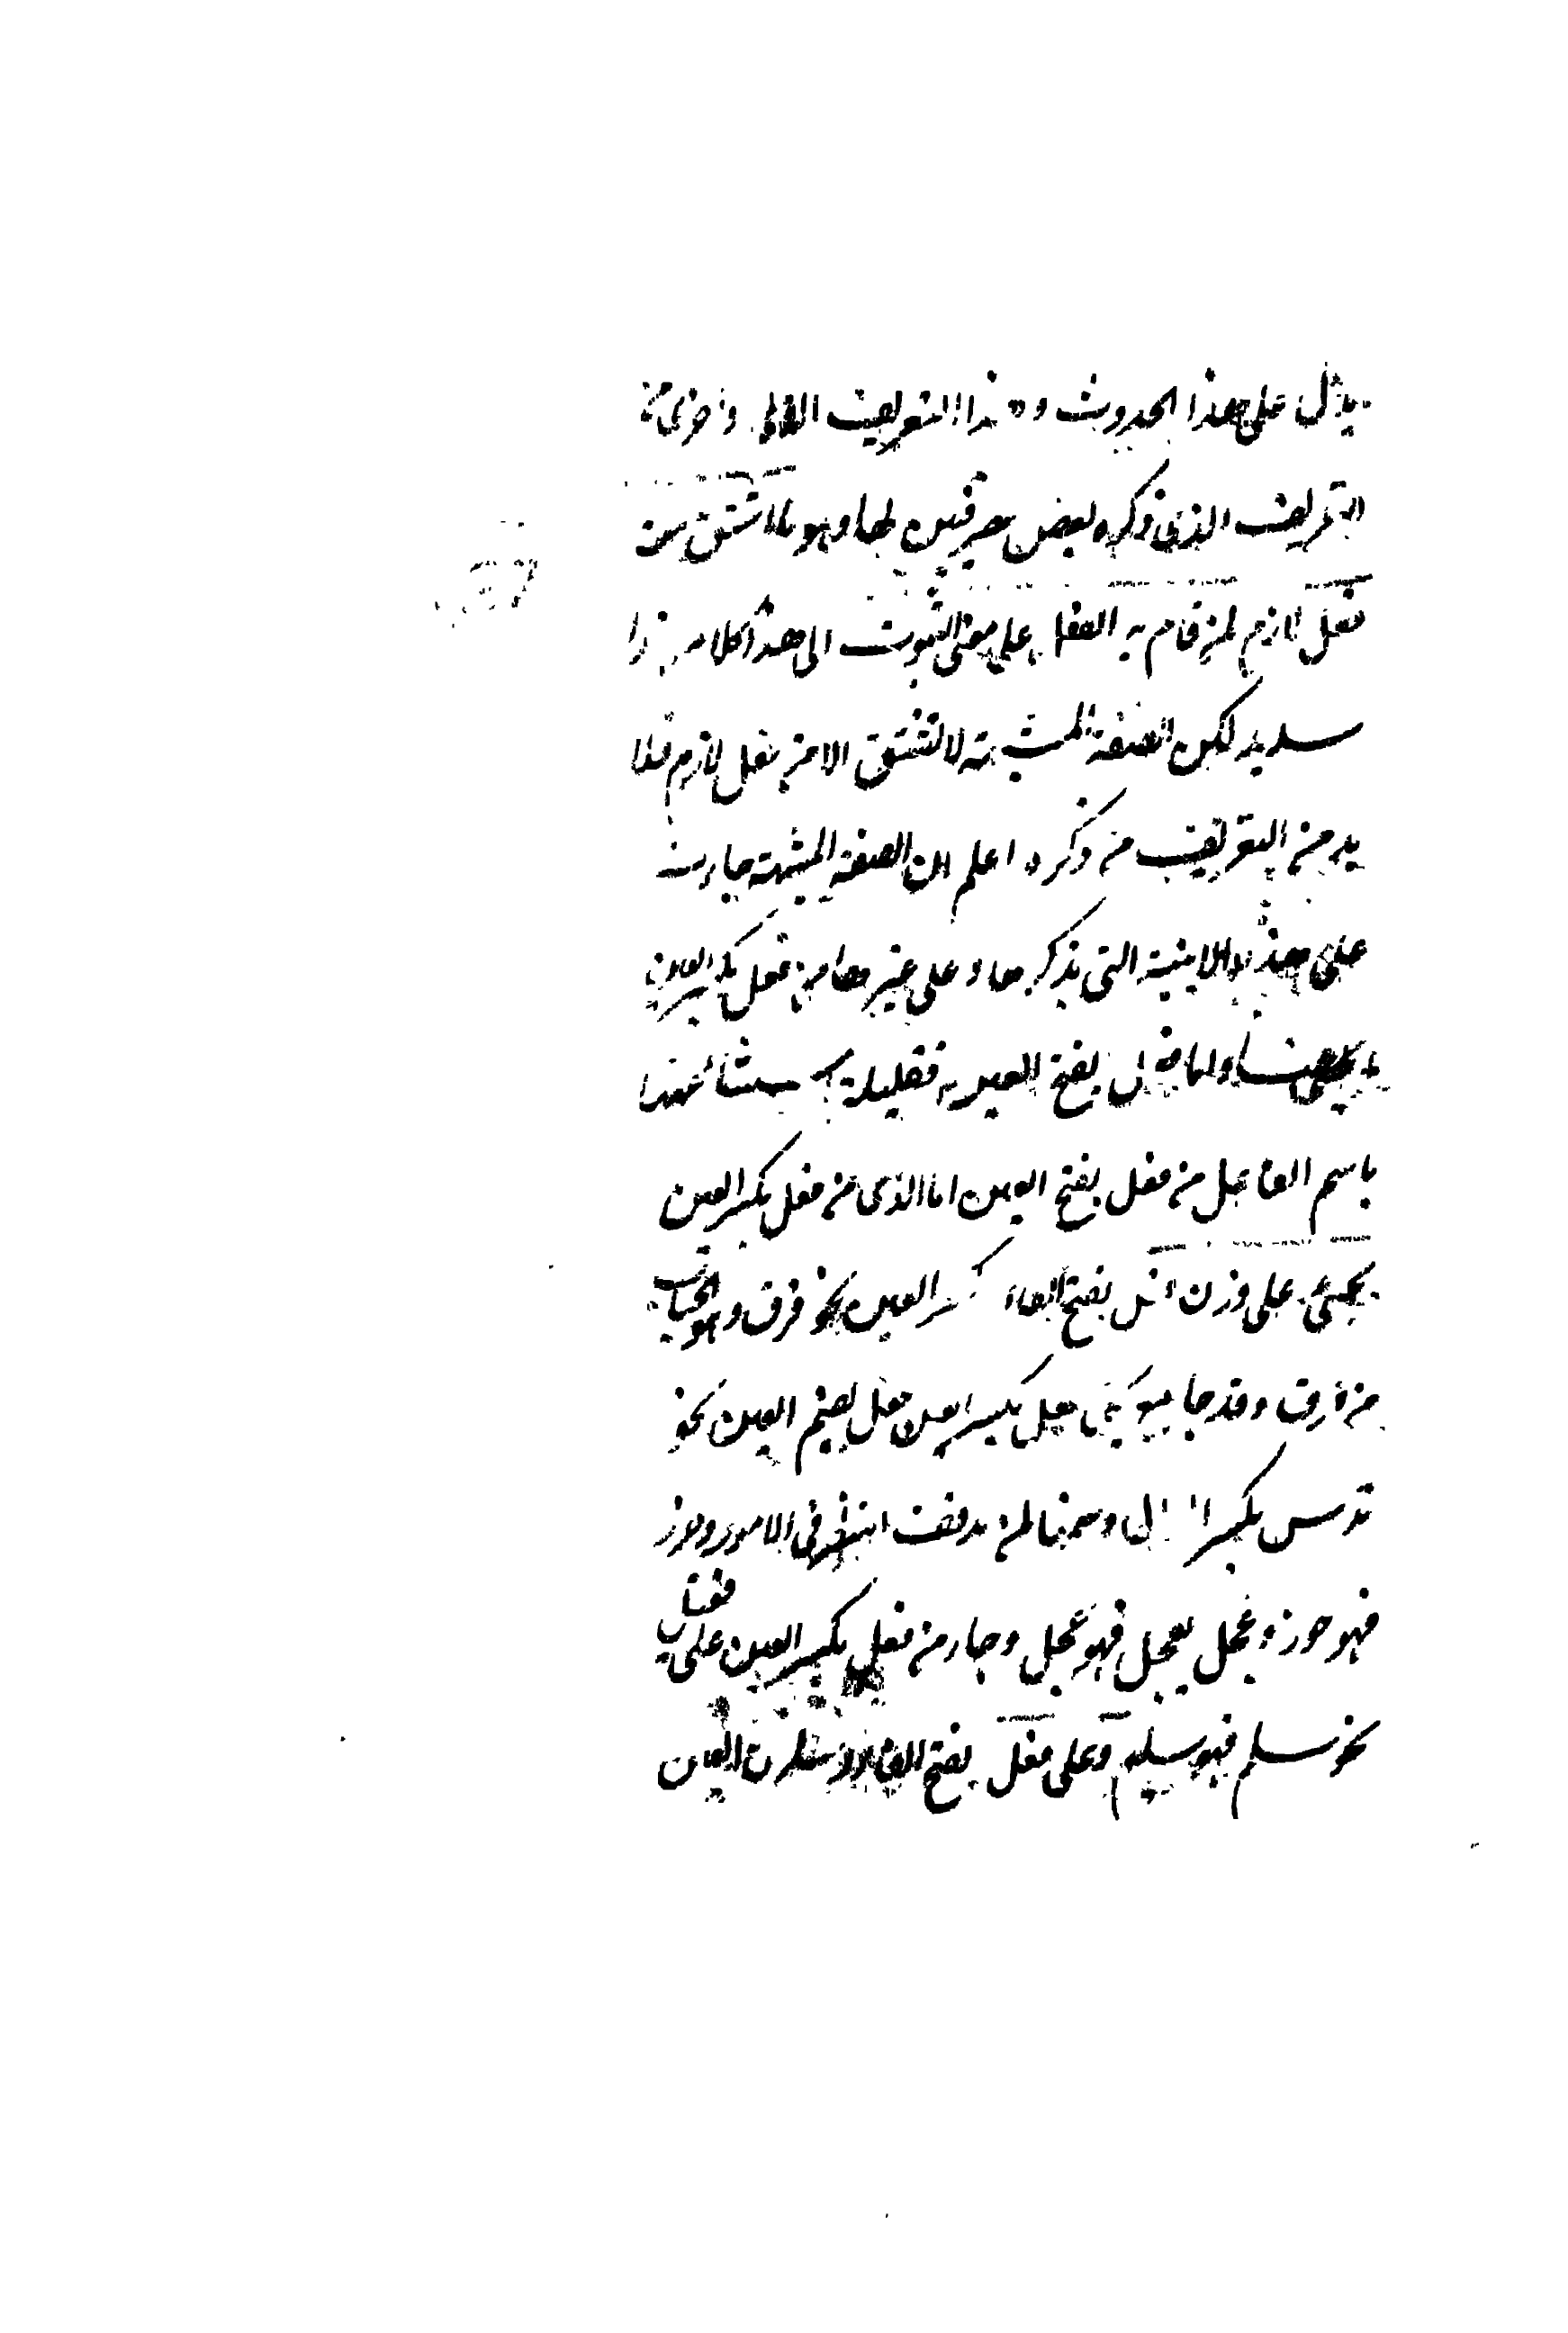 يدل على هذا الحدوث وهذا التعريف الاولى واحرى من
التعريف الذي ذكره بعض صرفيين لها وهو ما اشتق من
فعل لازم لمن قام به الفعل على معنى الثبوت الى هذا كلامه
سديد لكن الصفة المشبهة لا تشتق الا من فعل لازم فلا
بد من التعريف من ذكره اعلم ان الصفة المشبهة جاءت
على هذه الابنية التي يذكرها وعلى غيرها من فعل بكسر العين
بفتح العين فقليلة
باسم الفاعل من فعل بفتح العين اما الذي من فعل بكسر العين
يجيئ على وزن فعل بفتح الفاء وكسر العين نحو فرق وهو
من فرق وقد جاء بكسر العين فعل بضم العين نحو
ندس بكسر الدال وضمها لمن يدقق النظر في الامور وحذر
فهو حذر وعجل يعجل فهو عجل وجاء من فعل بكسر العين على
نحو سلم فهو سليم وعلى فعل بفتح الفاء العين